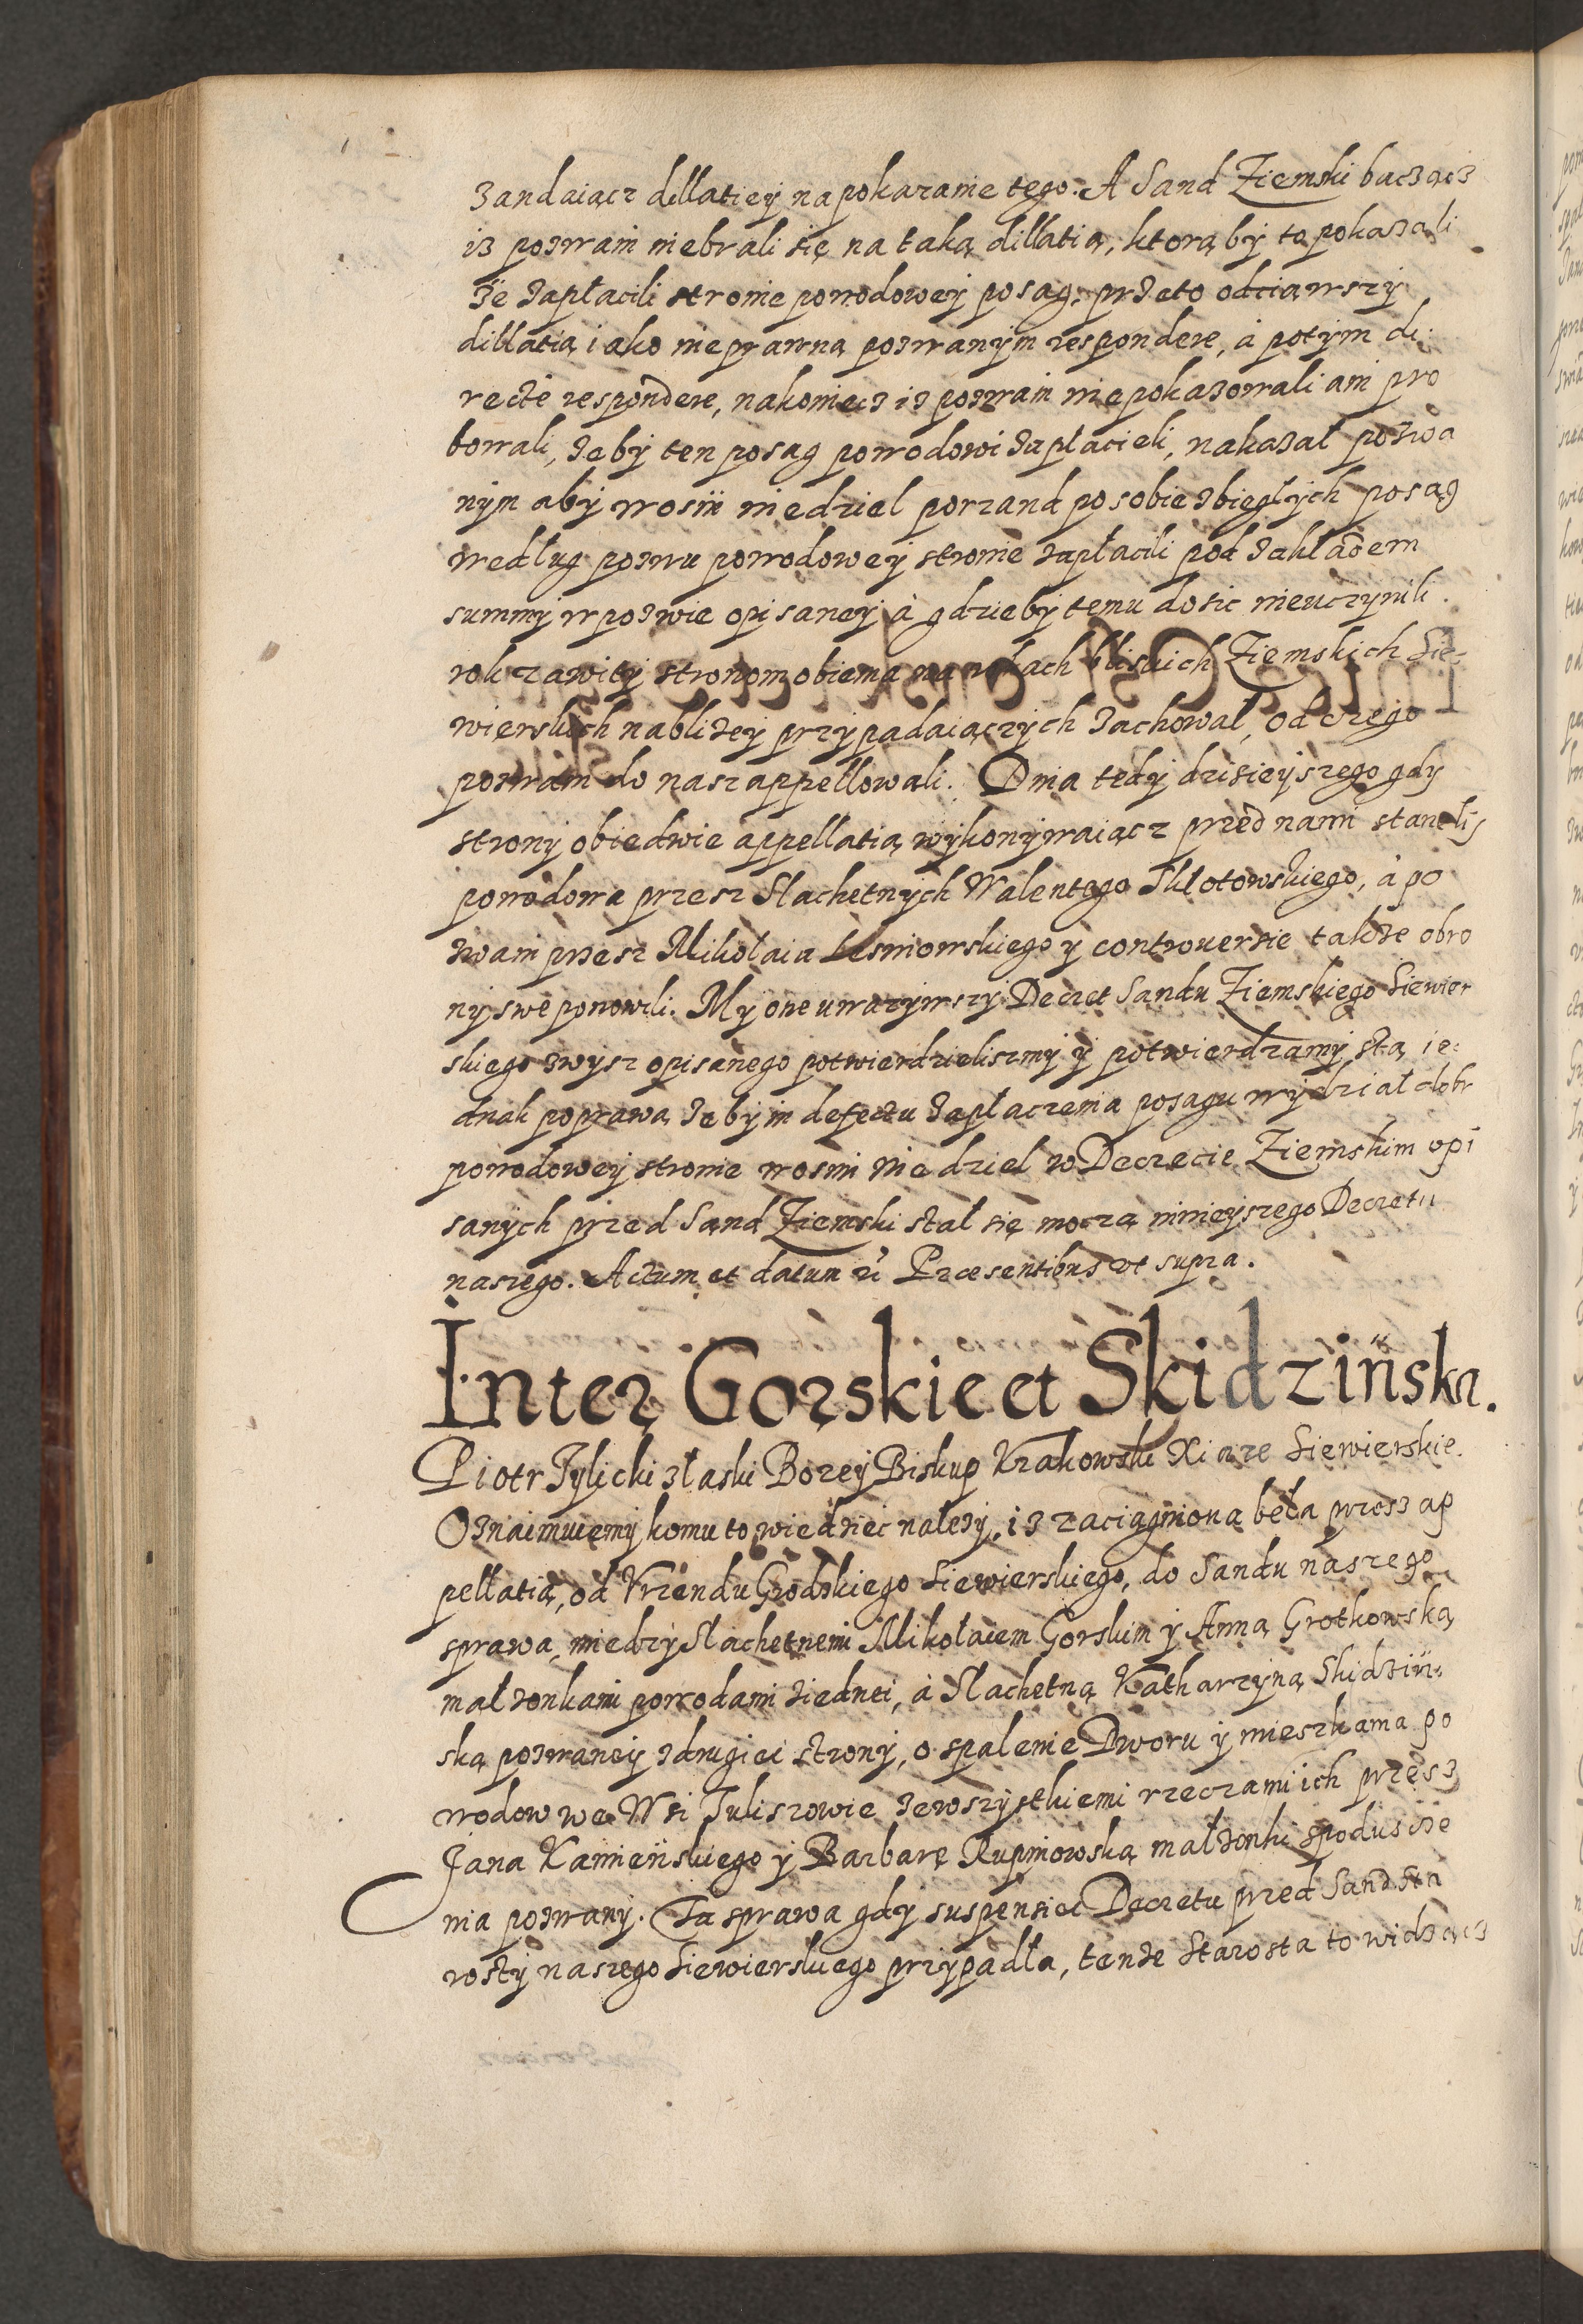 zandaiącz dillatiey na pokazanie tego. A Sand Ziemski baczącz
iz pozwani niebrali się na taką dillatią, ktorąby to pokazali
że zapłacili stronie powodowey posag, przeto odciąwszy
dillatią iako nieprawną pozwanym respondere, à potym di:
recte respondere, nakoniecz iz pozwani niepokazowali ani pro
bowali, żeby ten posag powodowi zapłacieli, nakazał pozwa
nym aby wosm niedziel porzand po sobie zbiegłych posag
według pozwu powodowey stronie zapłacili pod zakładem
summy w pozwie opisaney à gdzieby temu dosic nieuczynili.
rok zawity stronom obiema na rokach bliskich Ziemskich Sie:
wierskich nabliżey przypadaiączych zachował, od czego
pozwani do nasz appellowali. Dnia tedy dzisieyszego gdy
strony obiedwie appellatią wykonywaiącz przed nami stanęli,
powodowa przesz Slachetnych Walentego Skłotowskiego, à po
zwani przesz Mikołaia Lesniowskiego y controuersie także obro
ny swe ponowili. My one uwazywszy Decret Sandu Ziemskiego Siewier
skiego zwysz opisanego potwierdzieliszmy y potwierdzamy stą ie:
dnak poprawą żeby in defectu zapłaczenia posagu wydział dobr
powodowey stronie wosmi niedziel w Decrecie Ziemskim opi
sanych przed Sand Ziemski stał się moczą ninieyszego Decretu
naszego. Actum et datum ut Praesentibus ut supra.
Inter Gorskie et Skidzińska.
Piotr Tylicki złaski Bozey Biskup Krakowski Xiaze Siewierskie.
Oznaimuiemy komu to wiedziec należy, iz zaciągniona beła przesz ap
pellatią, od Vrzendu Grodzkiego Siewierskiego, do Sandu naszego
sprawa, miedzy Slachetnemi Mikołaiem Gorskim y Anną Grotkowską
małżonkami powodami ziednei, à Slachetną Katharzyną Skidziń:
ską pozwaney zdrugiei strony, o spalenie Dworu y mieszkania po
wodow we Wsi Tuliszowie zewszystkiemi rzeczami ich przesz
Jana Kamieńskiego y Barbarę Rupniowską małżonki spoduscze
nia pozwany. Ta sprawa gdy suspensiei Decretu przed Sand Sta
rosty naszego Siewierskiego przypadła, tenże Starosta to widzącz